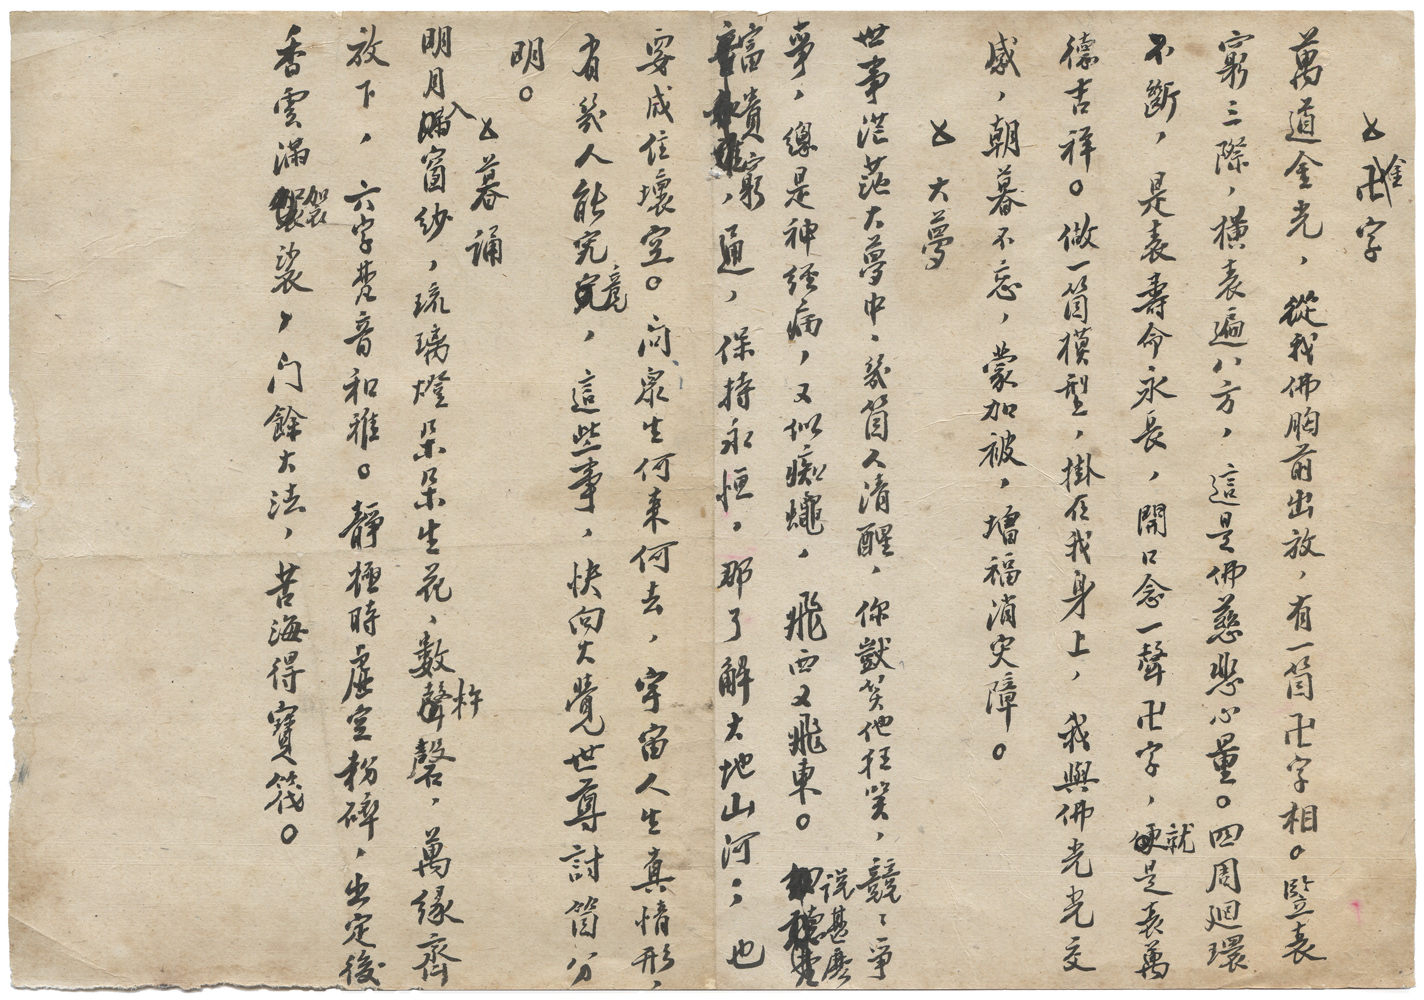 金卍字
萬道金光，從我佛胸前出放，有一箇卍字相。豎表
窮三際，橫表遍八方，這是佛慈悲心量。四周迴環
不斷，是表壽命永長，開口念一聲卍字，就是表萬
德吉祥。做一箇模型，掛在我身上，我與佛光光交
感，朝暮不忘，蒙加被，增福消灾障。
大夢
世事茫茫大夢中，幾箇人清醒，你獃笑他狂笑，競競爭
爭，總是神經病，又似痴蠅，飛西又飛東。說甚麽
富貴窮通，保持永恒，那了解大地山河；也
要成住壞空。问衆生何来何去，宇宙人生真情形，
有幾人能究竟，這些事，快向大覺世尊討箇分
明。
暮誦
明月入窗纱，琉璃燈朵朵生花，數杵聲磬，萬緣齊
放下，六字梵音和雅。靜極時虛空粉碎，出定後
香雲滿袈裟，门餘大法，苦海得寶筏。